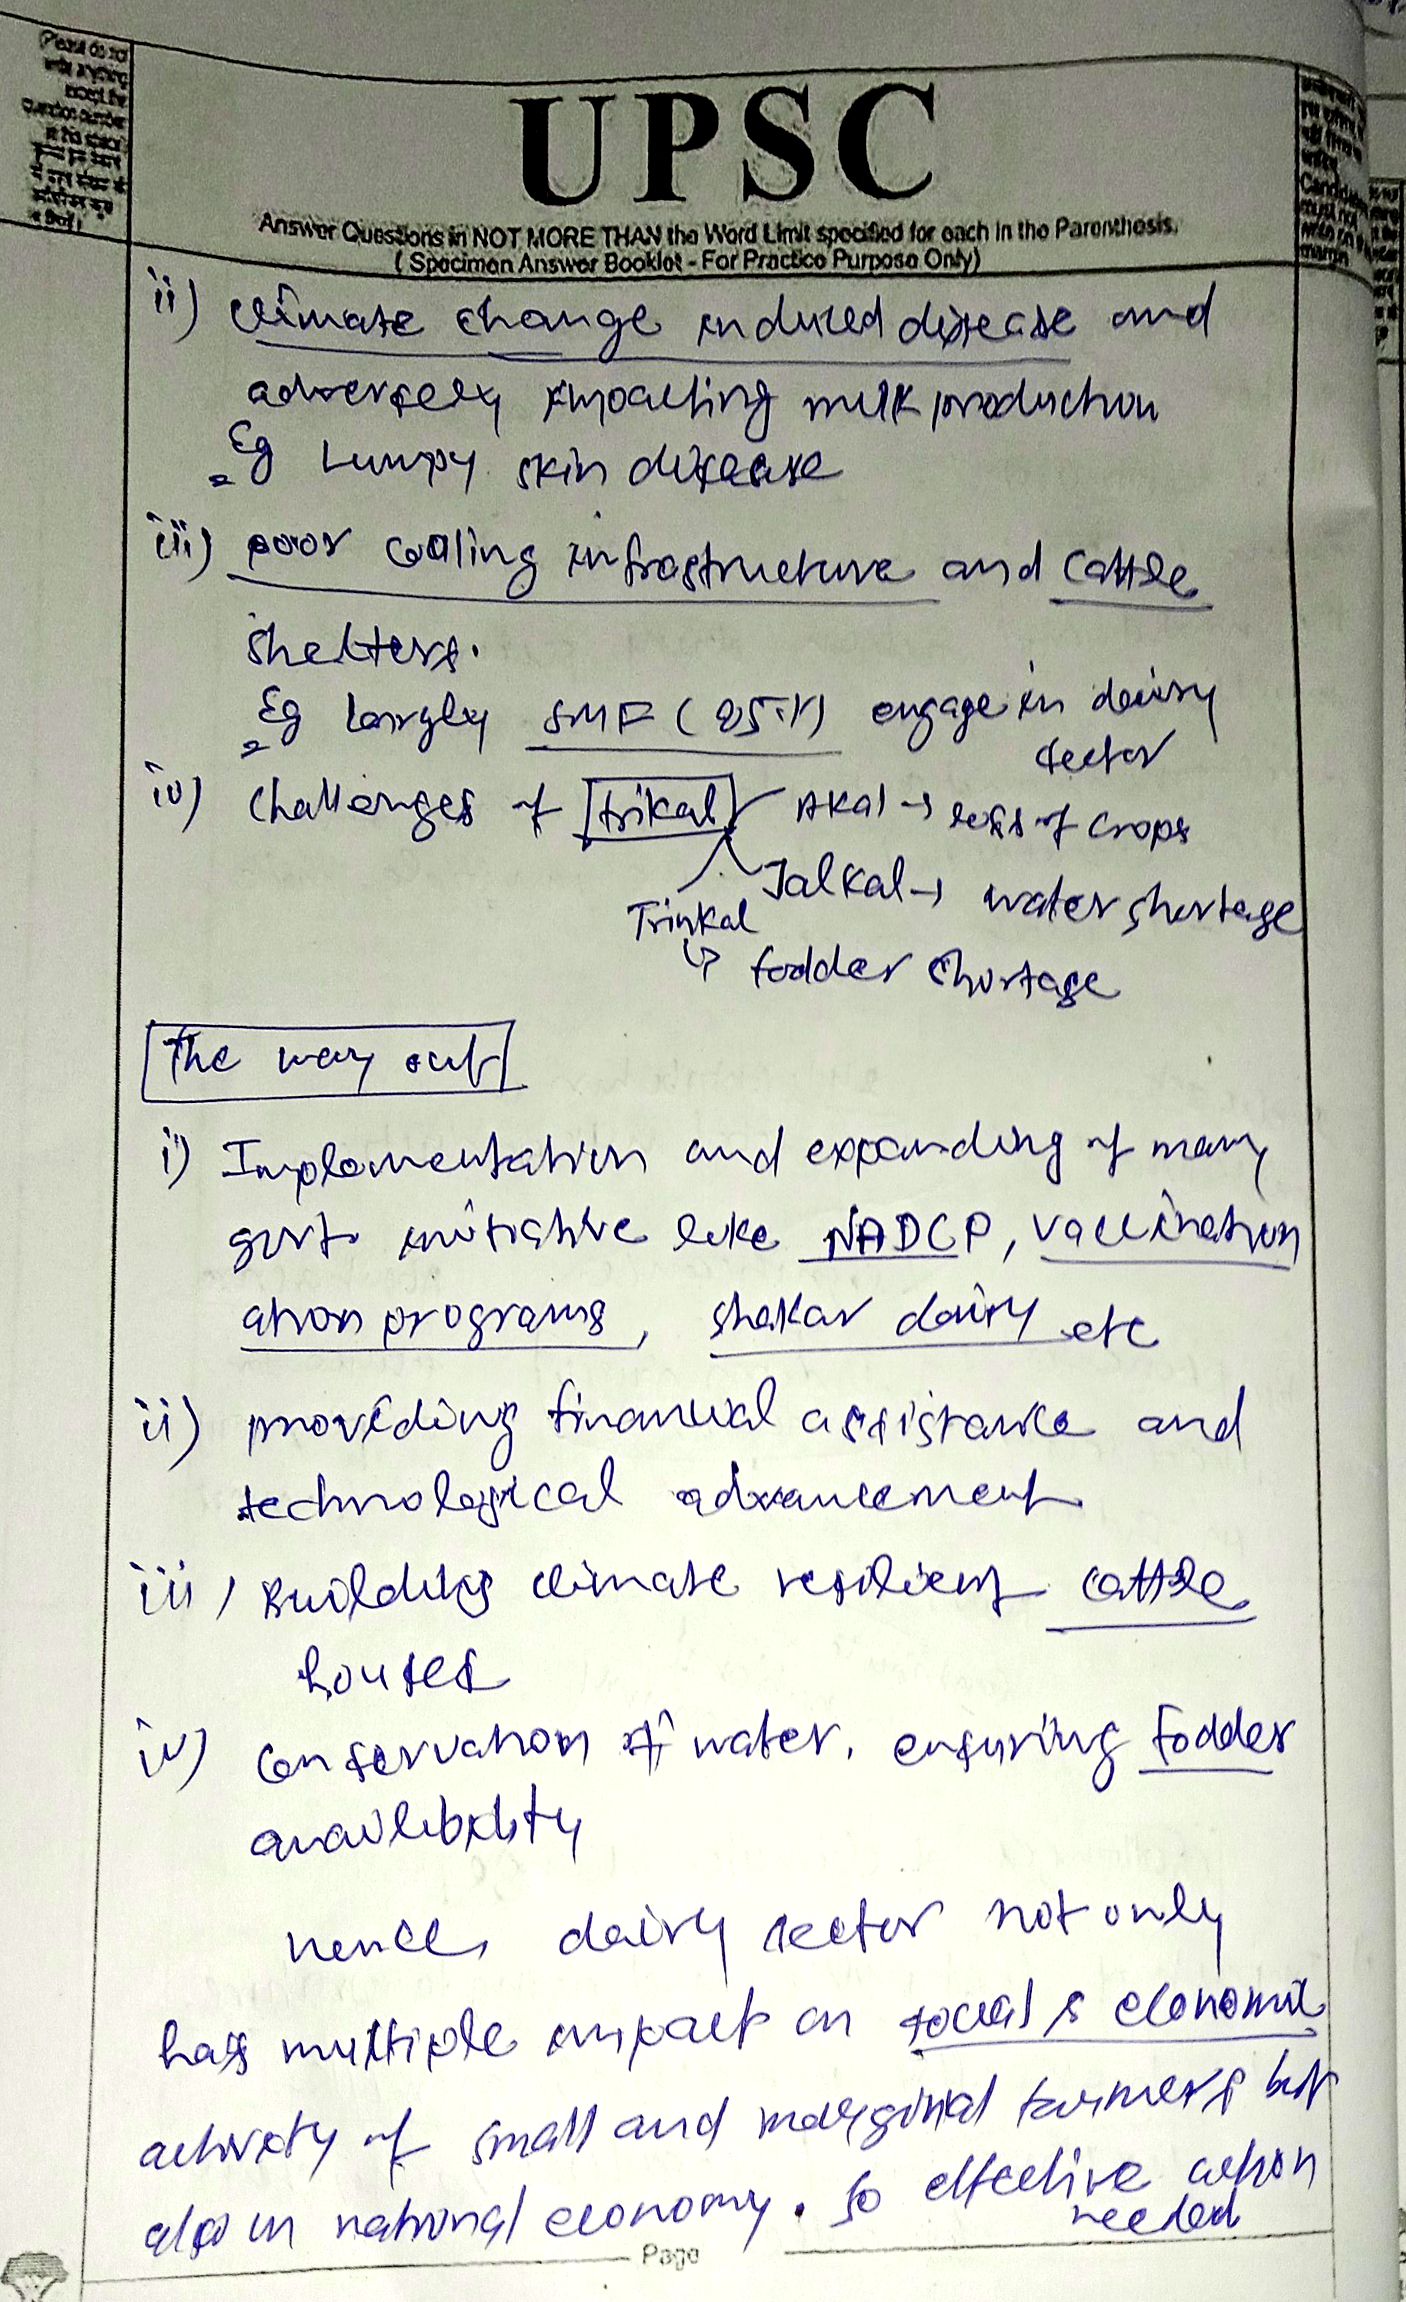 (Please do not
write anything
except the
question number
in this space)
UPSC
Answer Questions in NOT MORE THAN the Word Limit specified for each in the Parenthesis.
( Specimen Answer Booklet - For Practice Purpose Only)
Candidates
must not
write on this
margin
ii) climate change induced disease and
adversely impacting milk production
Eg Lumpy skin disease
iii) poor cooling infrastructure and cattle
shelters.
Eg largly SMF (85%) engage in dairy
sector
iv) challenges of trikal Akal → loss of crops
Jalkal → water shortage
Trinkal
↳ fodder shortage
The way out
i) Implementation and expanding of many
govt initiative like NADCP, vaccination
ation programs, dairy etc
ii) providing financial assistance and
technological advancement
iii) Building climate resilient cattle
houses
iv) conservation of water, ensuring fodder
availibility
hence, dairy sector not only
has multiple impact on social & economic
activity of small and marginal farmers but
also in national economy. So effective action
needed
Page